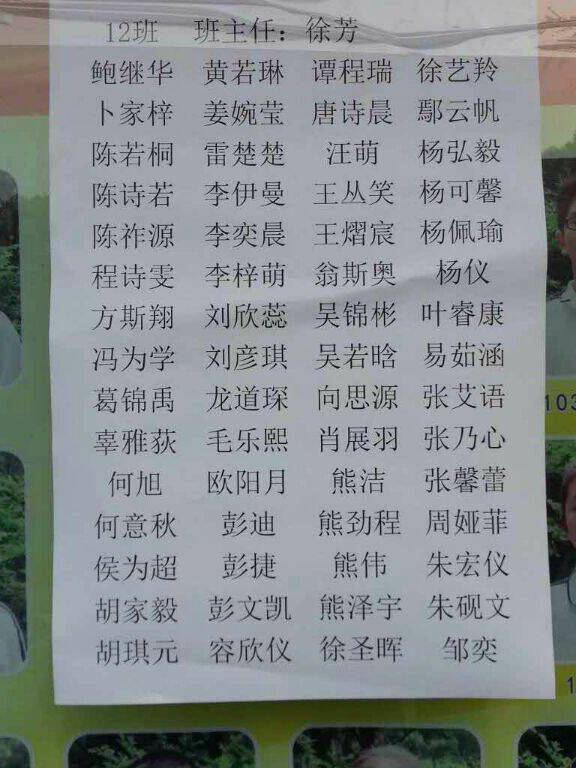 12班 班主任：徐芳
鲍继华 黄若琳 谭程瑞 徐艺羚
卜家梓 姜婉莹 唐诗晨 鄢云帆
陈若桐 雷楚楚 汪萌 杨弘毅
陈诗若 李伊曼 王丛笑 杨可馨
陈祚源 李奕晨 王熠宸 杨佩瑜
程诗雯 李梓萌 翁斯奥 杨仪
方斯翔 刘欣蕊 吴锦彬 叶睿康
冯为学 刘彦琪 吴若晗 易茹涵
葛锦禹 龙道琛 向思源 张艾语
辜雅荻 毛乐熙 肖展羽 张乃心
何旭 欧阳月 熊洁 张馨蕾
何意秋 彭迪 熊劲程 周娅菲
侯为超 彭捷 熊伟 朱宏仪
胡家毅 彭文凯 熊泽宇 朱砚文
胡琪元 容欣仪 徐圣晖 邹奕
103